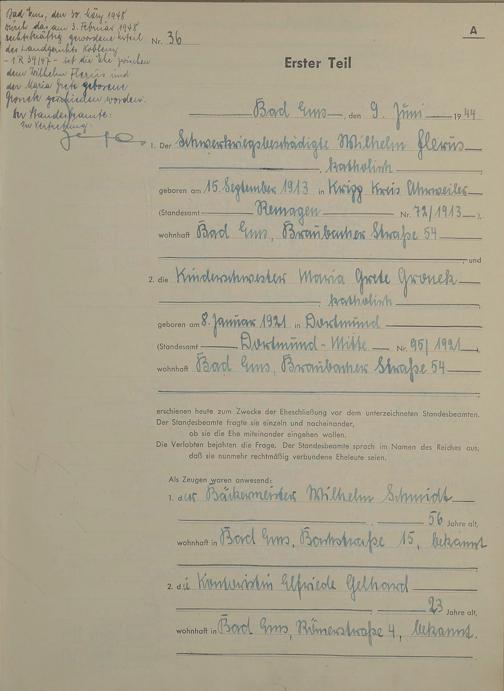 Bad Ems, den 30. März 1948
Durch das am 3. Februar 1948
rechtskräftig gewordene Urteil
des Landgerichts Koblenz
- 1 R 39/47 - ist die Ehe zwischen
dem Wilhelm Flerus und
der Maria Grete geborene
Gronek geschieden worden.
Der Standesbeamte.
In Vertretung
A
Nr. 36
Erster Teil
Bad Ems, den 9. Juni 1944
1. Der Schwerkriegsbeschädigte Wilhelm Flerus
, katholisch
geboren am 15. September 1913 in Kripp Kreis Ahrweiler
(Standesamt Remagen Nr. 72/1913 ),
wohnhaft Bad Ems, Braubacher Straße 54
, und
2. die Kinderschwester Maria Grete Gronek
, katholisch
geboren am 8. Januar 1921 in Dortmund
(Standesamt Dortmund-Mitte Nr. 95/1921 ),
wohnhaft Bad Ems, Braubacher Straße 54
erschienen heute zum Zwecke der Eheschließung vor dem unterzeichneten Standesbeamten.
Der Standesbeamte fragte sie einzeln und nacheinander,
ob sie die Ehe miteinander eingehen wollen.
Die Verlobten bejahten die Frage. Der Standesbeamte sprach im Namen des Reiches aus,
daß sie nunmehr rechtmäßig verbundene Eheleute seien.
Als Zeugen waren anwesend:
1. der Bäckermeister Wilhelm Schmidt
, 56 Jahre alt,
wohnhaft in Bad Ems, 15, bekannt
2. die Kontoristin Elfriede Gelhard
, 23 Jahre alt,
wohnhaft in Bad Ems, Römerstraße 4, bekannt.